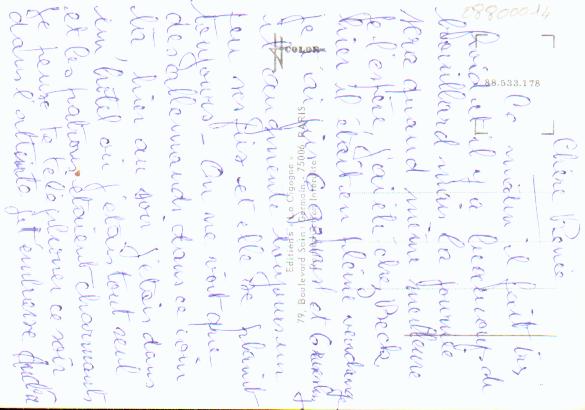 Chère Renée
Ce matin il fait gris
il y a beaucoup de
brouillard mais la journée
sera quand même meilleure
je l'espère J'ai été chez Beck
hier il était en pleine vendange
Je et
et un
peu ses fils et elle se plaint
toujours - On ne voit que
des allemands dans ce coin
là hier au soir j'étais dans
un hôtel où j'étais tout seul
et les patrons étaient charmants
Je pense te téléphoner ce soir
dans l'attente je t'embrasse André
COLOR
Editions "La Cigogne"
79, Boulevard Saint-Germain, 75006 PARIS
88.533.178